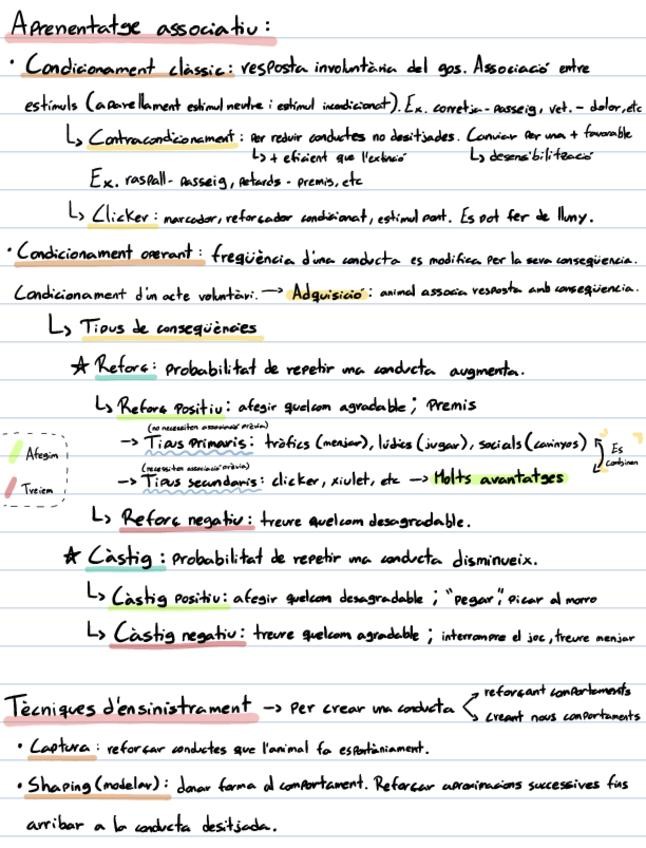 Aprenentatge associatiu:
· Condicionament clàssic: resposta involuntària del gos. Associació entre
estímuls (aparellament estímul neutre i estímul incondicionat). Ex. corretja - passeig, vet. - dolor, etc
↳ Contracondicionament: per reduir conductes no desitjades. Canviar per una + favorable
↳ + eficient que l'extinció ↳ desensibilització
Ex. raspall - passeig, petards - premis, etc
↳ Clicker: marcador, reforçador condicionat, estímul pont. Es pot fer de lluny.
· Condicionament operant: freqüència d'una conducta es modifica per la seva conseqüència.
Condicionament d'un acte voluntàri. → Adquisició: animal associa resposta amb conseqüencia.
↳ Tipus de conseqüències
☆ Reforç: probabilitat de repetir una conducta augmenta.
↳ Reforç positiu: afegir quelcom agradable; premis
(no necessiten associació prèvia)
→ Tipus primaris: tròfics (menjar), lúdics (jugar), socials (carinyos) Es combinen
(necessiten associació prèvia)
→ Tipus secundaris: clicker, xiulet, etc → Molts avantatges
Afegim
Treiem
↳ Reforç negatiu: treure quelcom desagradable.
☆ Càstig: probabilitat de repetir una conducta disminueix.
↳ Càstig positiu: afegir quelcom desagradable; "pegar", picar al morro
↳ Càstig negatiu: treure quelcom agradable; interrompre el joc, treure menjar
Tècniques d'ensinistrament → per crear una conducta
reforçant comportaments
creant nous comportaments
· Captura: reforçar conductes que l'animal fa espontàniament.
· Shaping (modelar): donar forma al comportament. Reforçar aproximacions successives fins
arribar a la conducta desitjada.